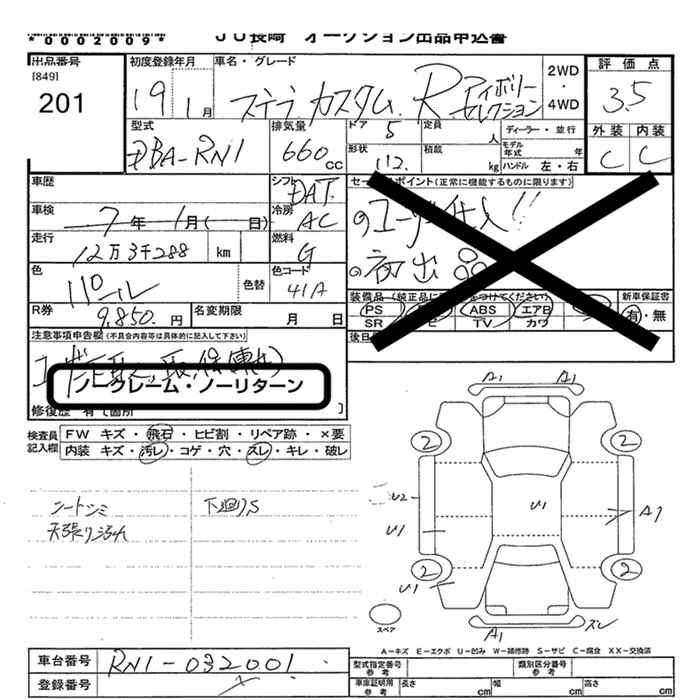 *0002009*
JU長崎 オークション出品申込書
出品番号
[849]
201
初度登録年月
19年 1月
車名・グレード
ステラ カスタム R アイボリーセレクション
2WD
・
4WD
評価点
3.5
外装 内装
C C
型式
DBA-RN1
排気量
660cc
ドア 5
定員 人
形状
積載 kg
ディーラー・並行
モデル年式 年
ハンドル 左・右
車歴
シフト
DAT
セールスポイント(正常に機能するものに限ります)
車検
7年 1月( 日)
冷房
AC
走行
12万3千288 km
燃料
G
色
色替
色コード
41A
装備品(純正品に
つけてください)
PS
ABS
エアB
SR
TV
カワ
新車保証書
有・無
R券
9,850.円
名変期限
月 日
注意事項申告欄(不具合内容等は具体的に記入して下さい)
ノークレーム・ノーリターン
修復歴 有(箇所 )
検査員
記入欄
FW キズ・飛石・ヒビ割・リペア跡・×要
内装 キズ・汚レ・コゲ・穴・スレ・キレ・破レ
シートシミ
天張り汚れ
下廻りS
A1 A1
2 2
U2
U1
U1
A1
U1
2 2
スペア
A1
スレ
A-キズ E-エクボ U-凹み W-補修跡 S-サビ C-腐食 XX-交換済
車台番号
RN1-032001
登録番号
型式指定番号
参考
類別区分番号
参考
車庫証明用
参考
長さ cm
幅 cm
高さ cm